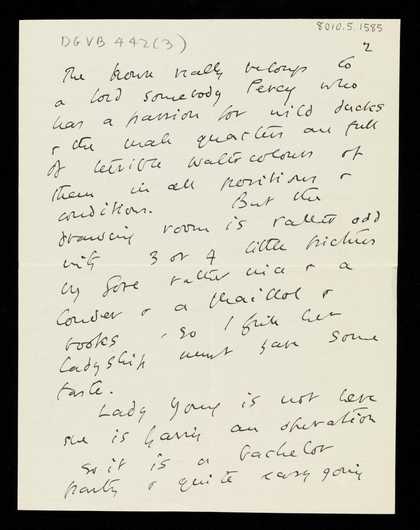 DGVB 442(3)
8010.5.1585
2
The house really belongs to
a lord somebody Percy who
has a passion for wild ducks
& the male quarters are full
of terrible watercolours of
them in all positions &
conditions. But the
drawing room is rather odd
with 3 or 4 little pictures
by Gore rather nice & a
Conder & a Maillol &
books, so I think her
ladyship must have some
taste.
Lady Young is not here
she is having an operation
so it is a bachelor
party & quite easy going